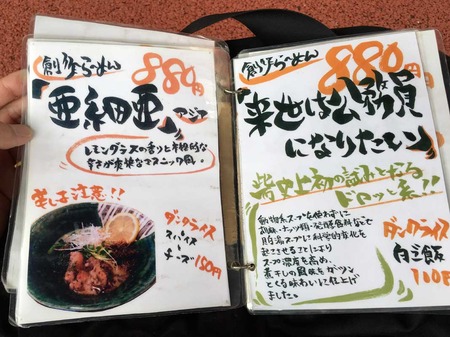 創作らーめん
880円
『亜細亜』アジア
レモングラスの香りと本格的な
辛さが爽快なエスニック風。
辛し注意!!
ダンクライス
スパイス
チーズ
150円
創作らーめん
880円
『来世は公務員
になりたい』
業界史上初の試みとなる
ドロッと系!!
動物系スープを使わずに
スープ濃度を高め、
煮干しの風味をガツン
とくる味わいに仕上げ
ました。
ダンクライス
白ご飯
100円